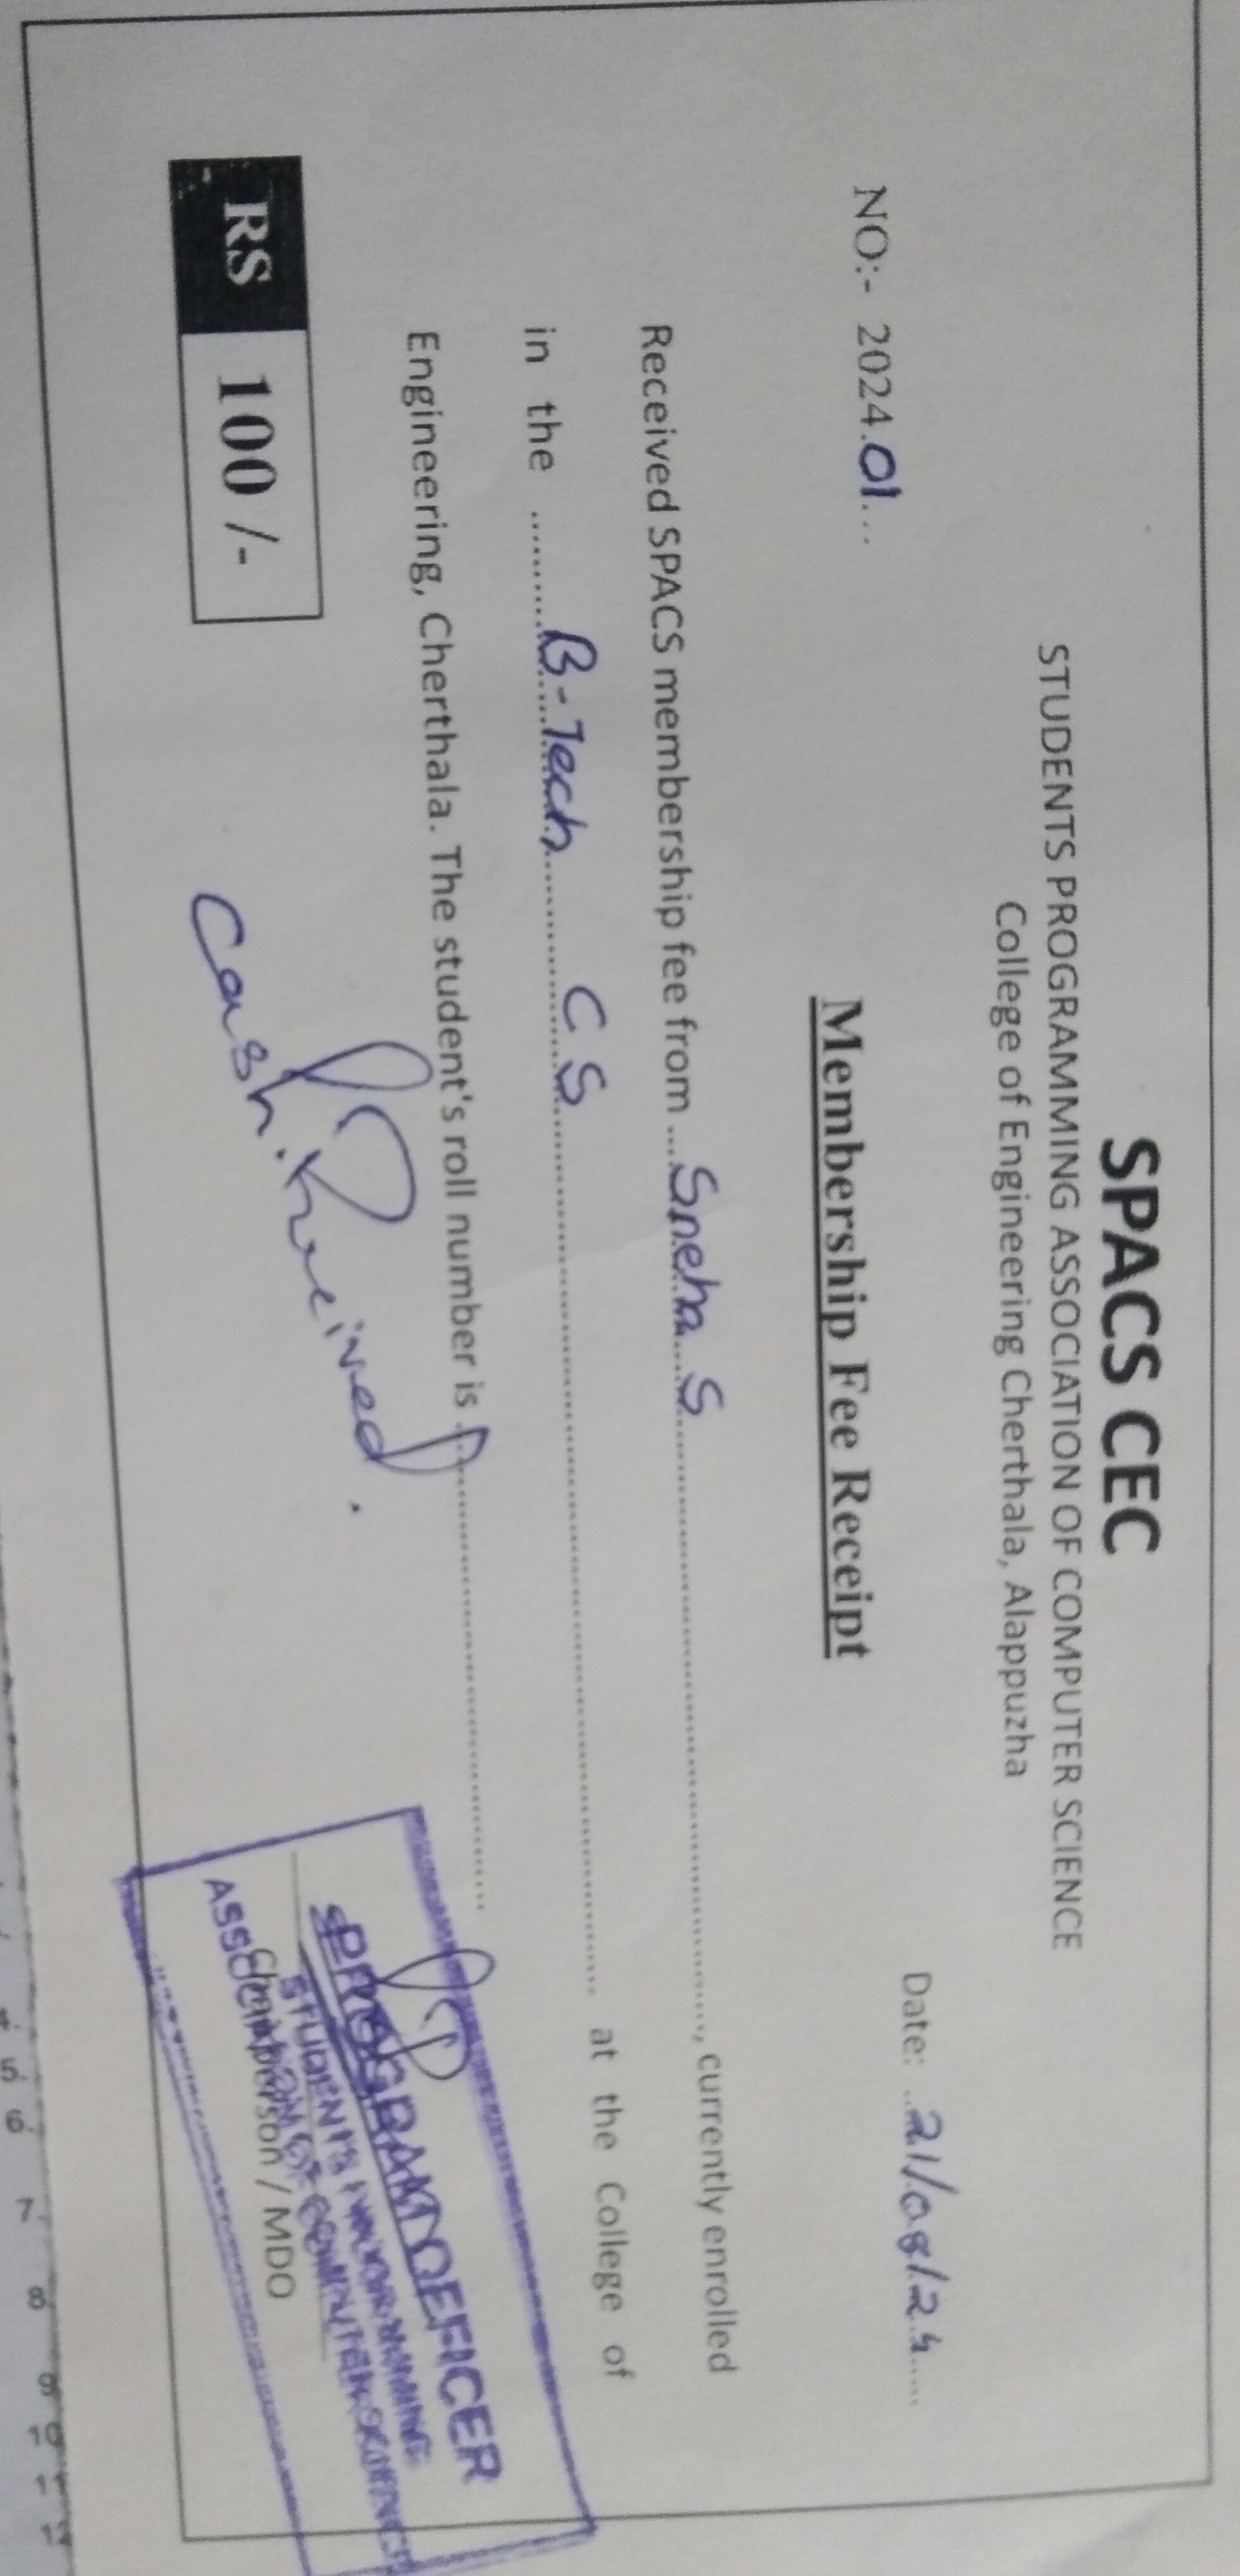 SPACS CEC
STUDENTS PROGRAMMING ASSOCIATION OF COMPUTER SCIENCE
College of Engineering Cherthala, Alappuzha
NO:- 2024.01...
Date: ..21/08/24.....
Membership Fee Receipt
Received SPACS membership fee from ....Sneha S...................., currently enrolled
in the ..........B-Tech CS.................... at the College of
Engineering, Cherthala. The student's roll number is ....................
RS 100 /-
Cash. Received.
PROGRAM OFFICER
STUDENTS PROGRAMMING
ASSOCIATION OF COMPUTER SCIENCE
Chairperson / MDO
5.
6.
7.
8
9
10
11